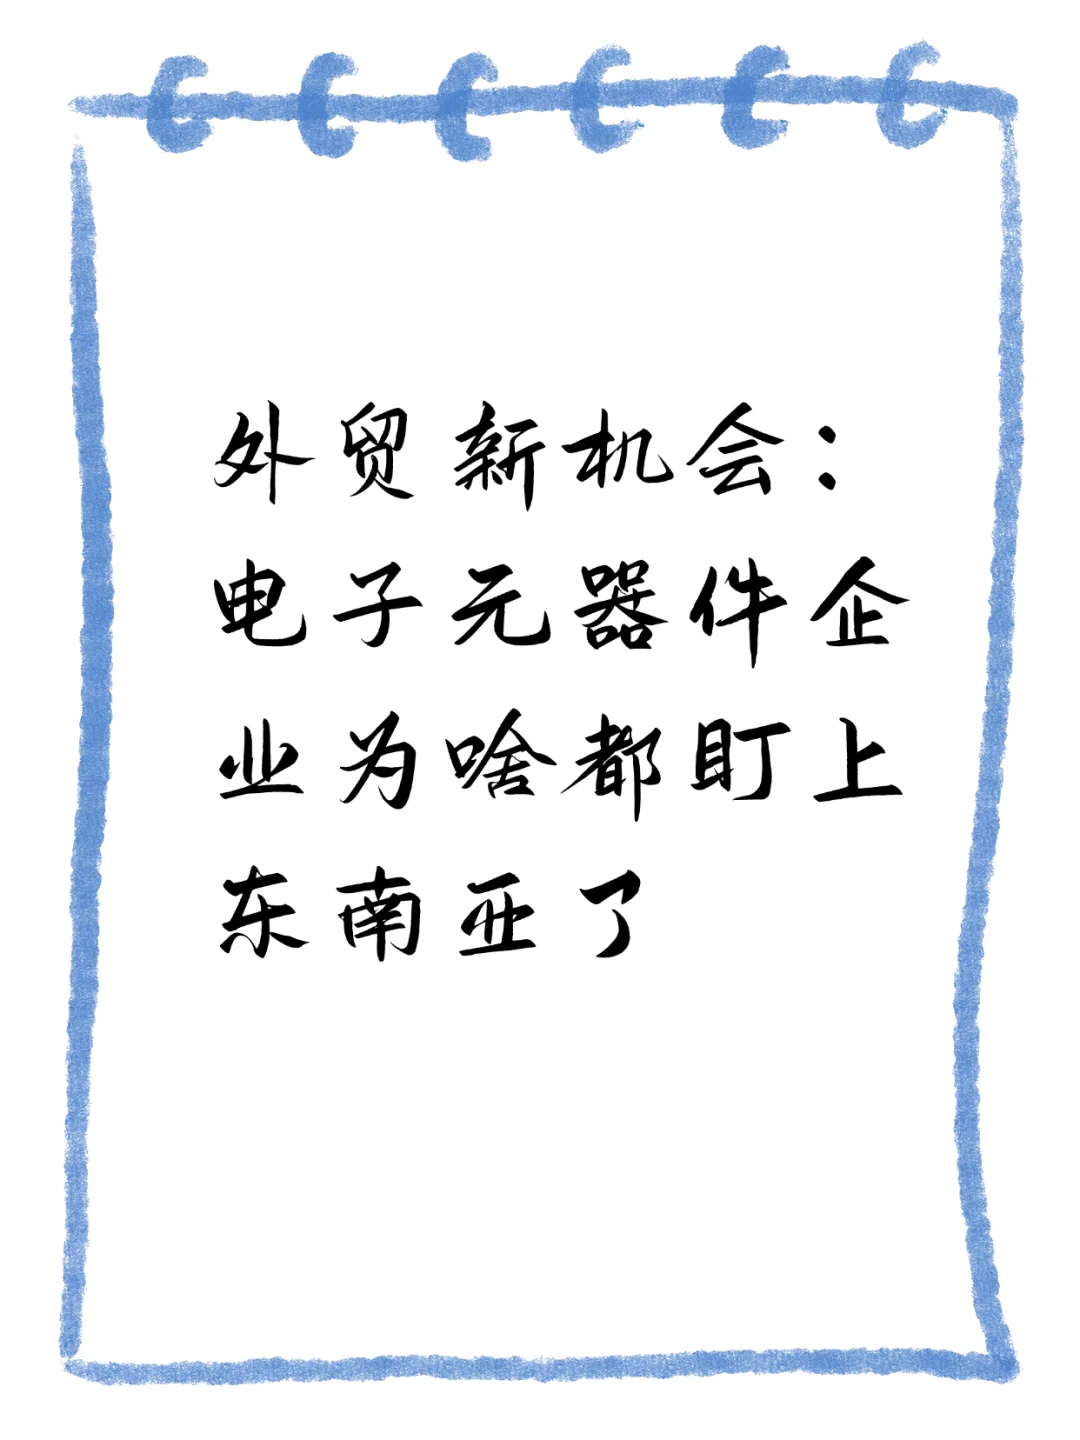 外贸新机会：
电子元器件企
业为啥都盯上
东南亚了